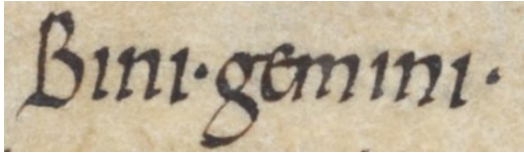 Bini·gemini·